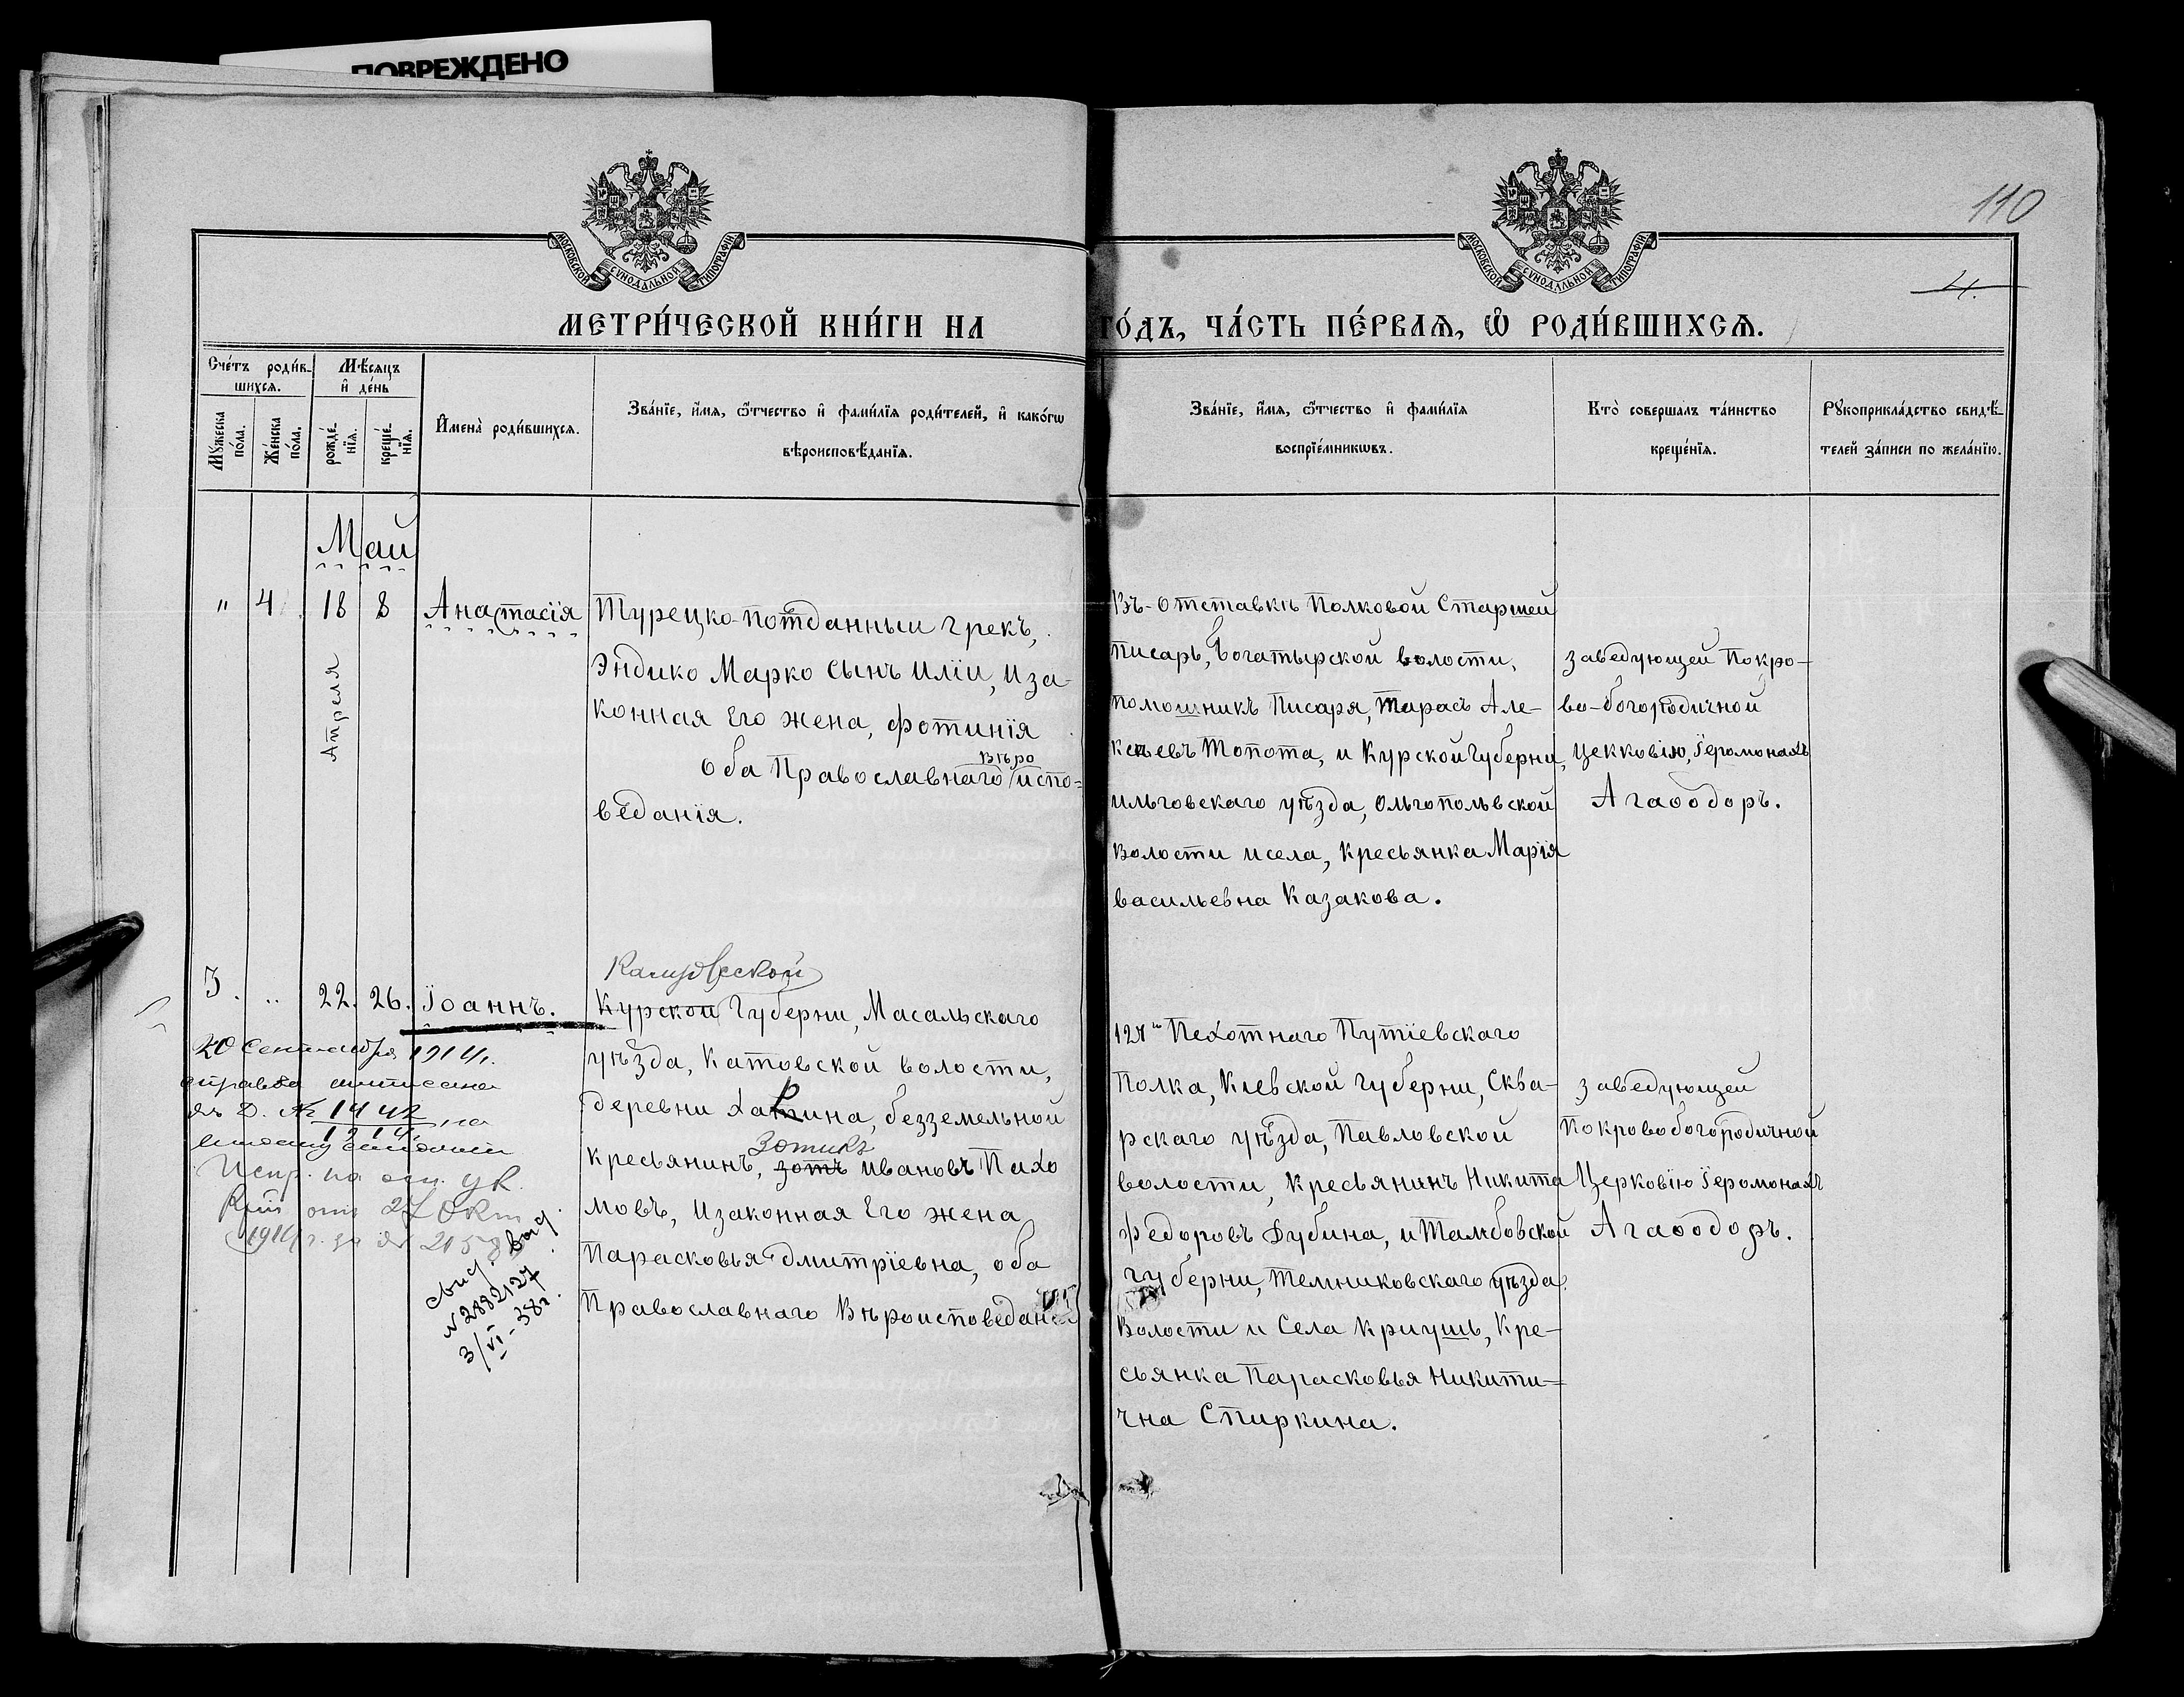 ПОВРЕЖДЕНО
МОСКОВСКОЙ СѴНОДАЛЬНОЙ ТИПОГРАФІИ
МОСКОВСКОЙ СѴНОДАЛЬНОЙ ТИПОГРАФІИ
110
4.
МЕТРИ́ЧЕСКОЙ КНИ́ГИ НА
ГО́ДЪ, ЧА́СТЬ ПЕ́РВАѦ, Ѡ҆ РОДИ́ВШИХСѦ.
Сче́тъ роди́в-
шихсѧ.
Мꙋ́жеска
по́ла.
Же́нска
по́ла.
Мѣ́сяцъ
и҆ де́нь
рожде́-
нїѧ.
креще́-
нїѧ.
И҆мена̀ роди́вшихсѧ.
Зва́нїе, и҆́мѧ, ѻ҆́тчество и҆ фами́лїѧ роди́телей, и҆ како́гѡ
вѣроисповѣ́данїѧ.
Зва́нїе, и҆́мѧ, ѻ҆́тчество и҆ фами́лїѧ
воспрїе́мникѡвъ.
Кто̀ соверша́лъ та́инство
креще́нїѧ.
Рꙋкоприкла́дство свидѣ́-
телей за́писи по жела́нїю.
Май
" 4 18 8 Анастасія
Апреля
Турецко-потданныи грекъ,
Эндико Марко сынъ Иліи, иза-
конная Его жена, фотинія
Оба Православнаго
вѣро
испо-
веданія.
Въ-отставкѣ Полковой Старшей
писарь, Богатырской волости,
помошникъ Писаря, Тарасъ Але-
ксѣевъ Топота, и Курской Губерни,
ильговскаго уѣзда, Ольгопольвской
волости исела, кресьянка Марія
васильевна Казакова.
заведующей Покро-
во-богородичной
цекковію, Іеромонахъ
Агаѳодоръ.
3. " 22. 26. Іоаннъ.
Калужской
Курской Губерни, Масальскаго
уѣзда, Катовской волости,
деревни Хатина, безземельной
Зотикъ
кресьянинъ, зотъ ивановъ Пахо
мовъ, Изаконная Его жена
Парасковья Дмитріевна, оба
Православнаго Вѣроисповедан
127го Пехотнаго Путіевскаго
Полка, Киевской губерни, Сква-
рскаго уѣзда, Павловской
волости, кресьянинъ Никита
Федоровъ Дубина, и Тамбовской
губерни, темниковскаго уѣзда
Волости и Села Криушь, Кре-
сьянка Парасковья Никити-
чна Спиркина.
заведующей
Покровобогородичной
Церковію Іеромонахъ
Агаѳодоръ.
20 Сентября 1914г.
справка
№ 1442
1914
Испр. на осн. ук.
от 27 Окт.
1914 г. за № 2157
свид. выд.
N 2882127
3/VI-38г.